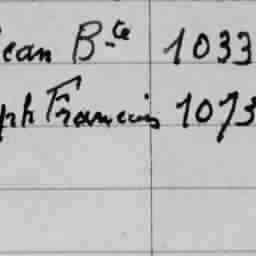 ean Bte 1033
ph Francois 1073